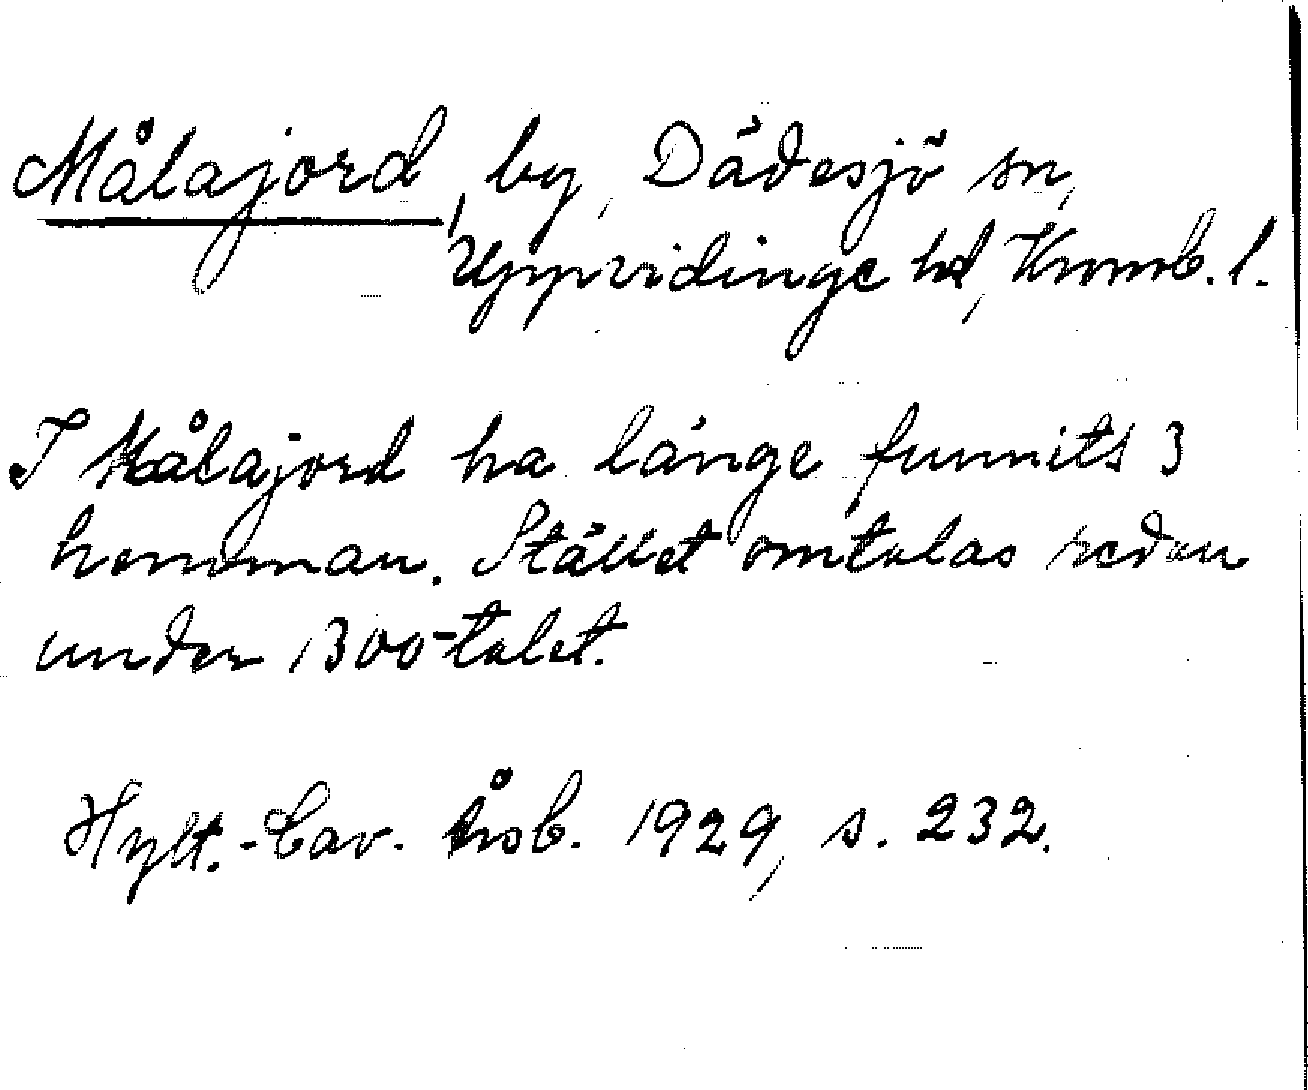 Målajord, by, Dädesjö sn,
Uppvidinge hd, Kronob. l.
I Målajord ha länge funnits 3
hemman. Stället omtalas redan
under 1300-talet.
Hylt.-Cav. Årsb. 1929, s. 232.